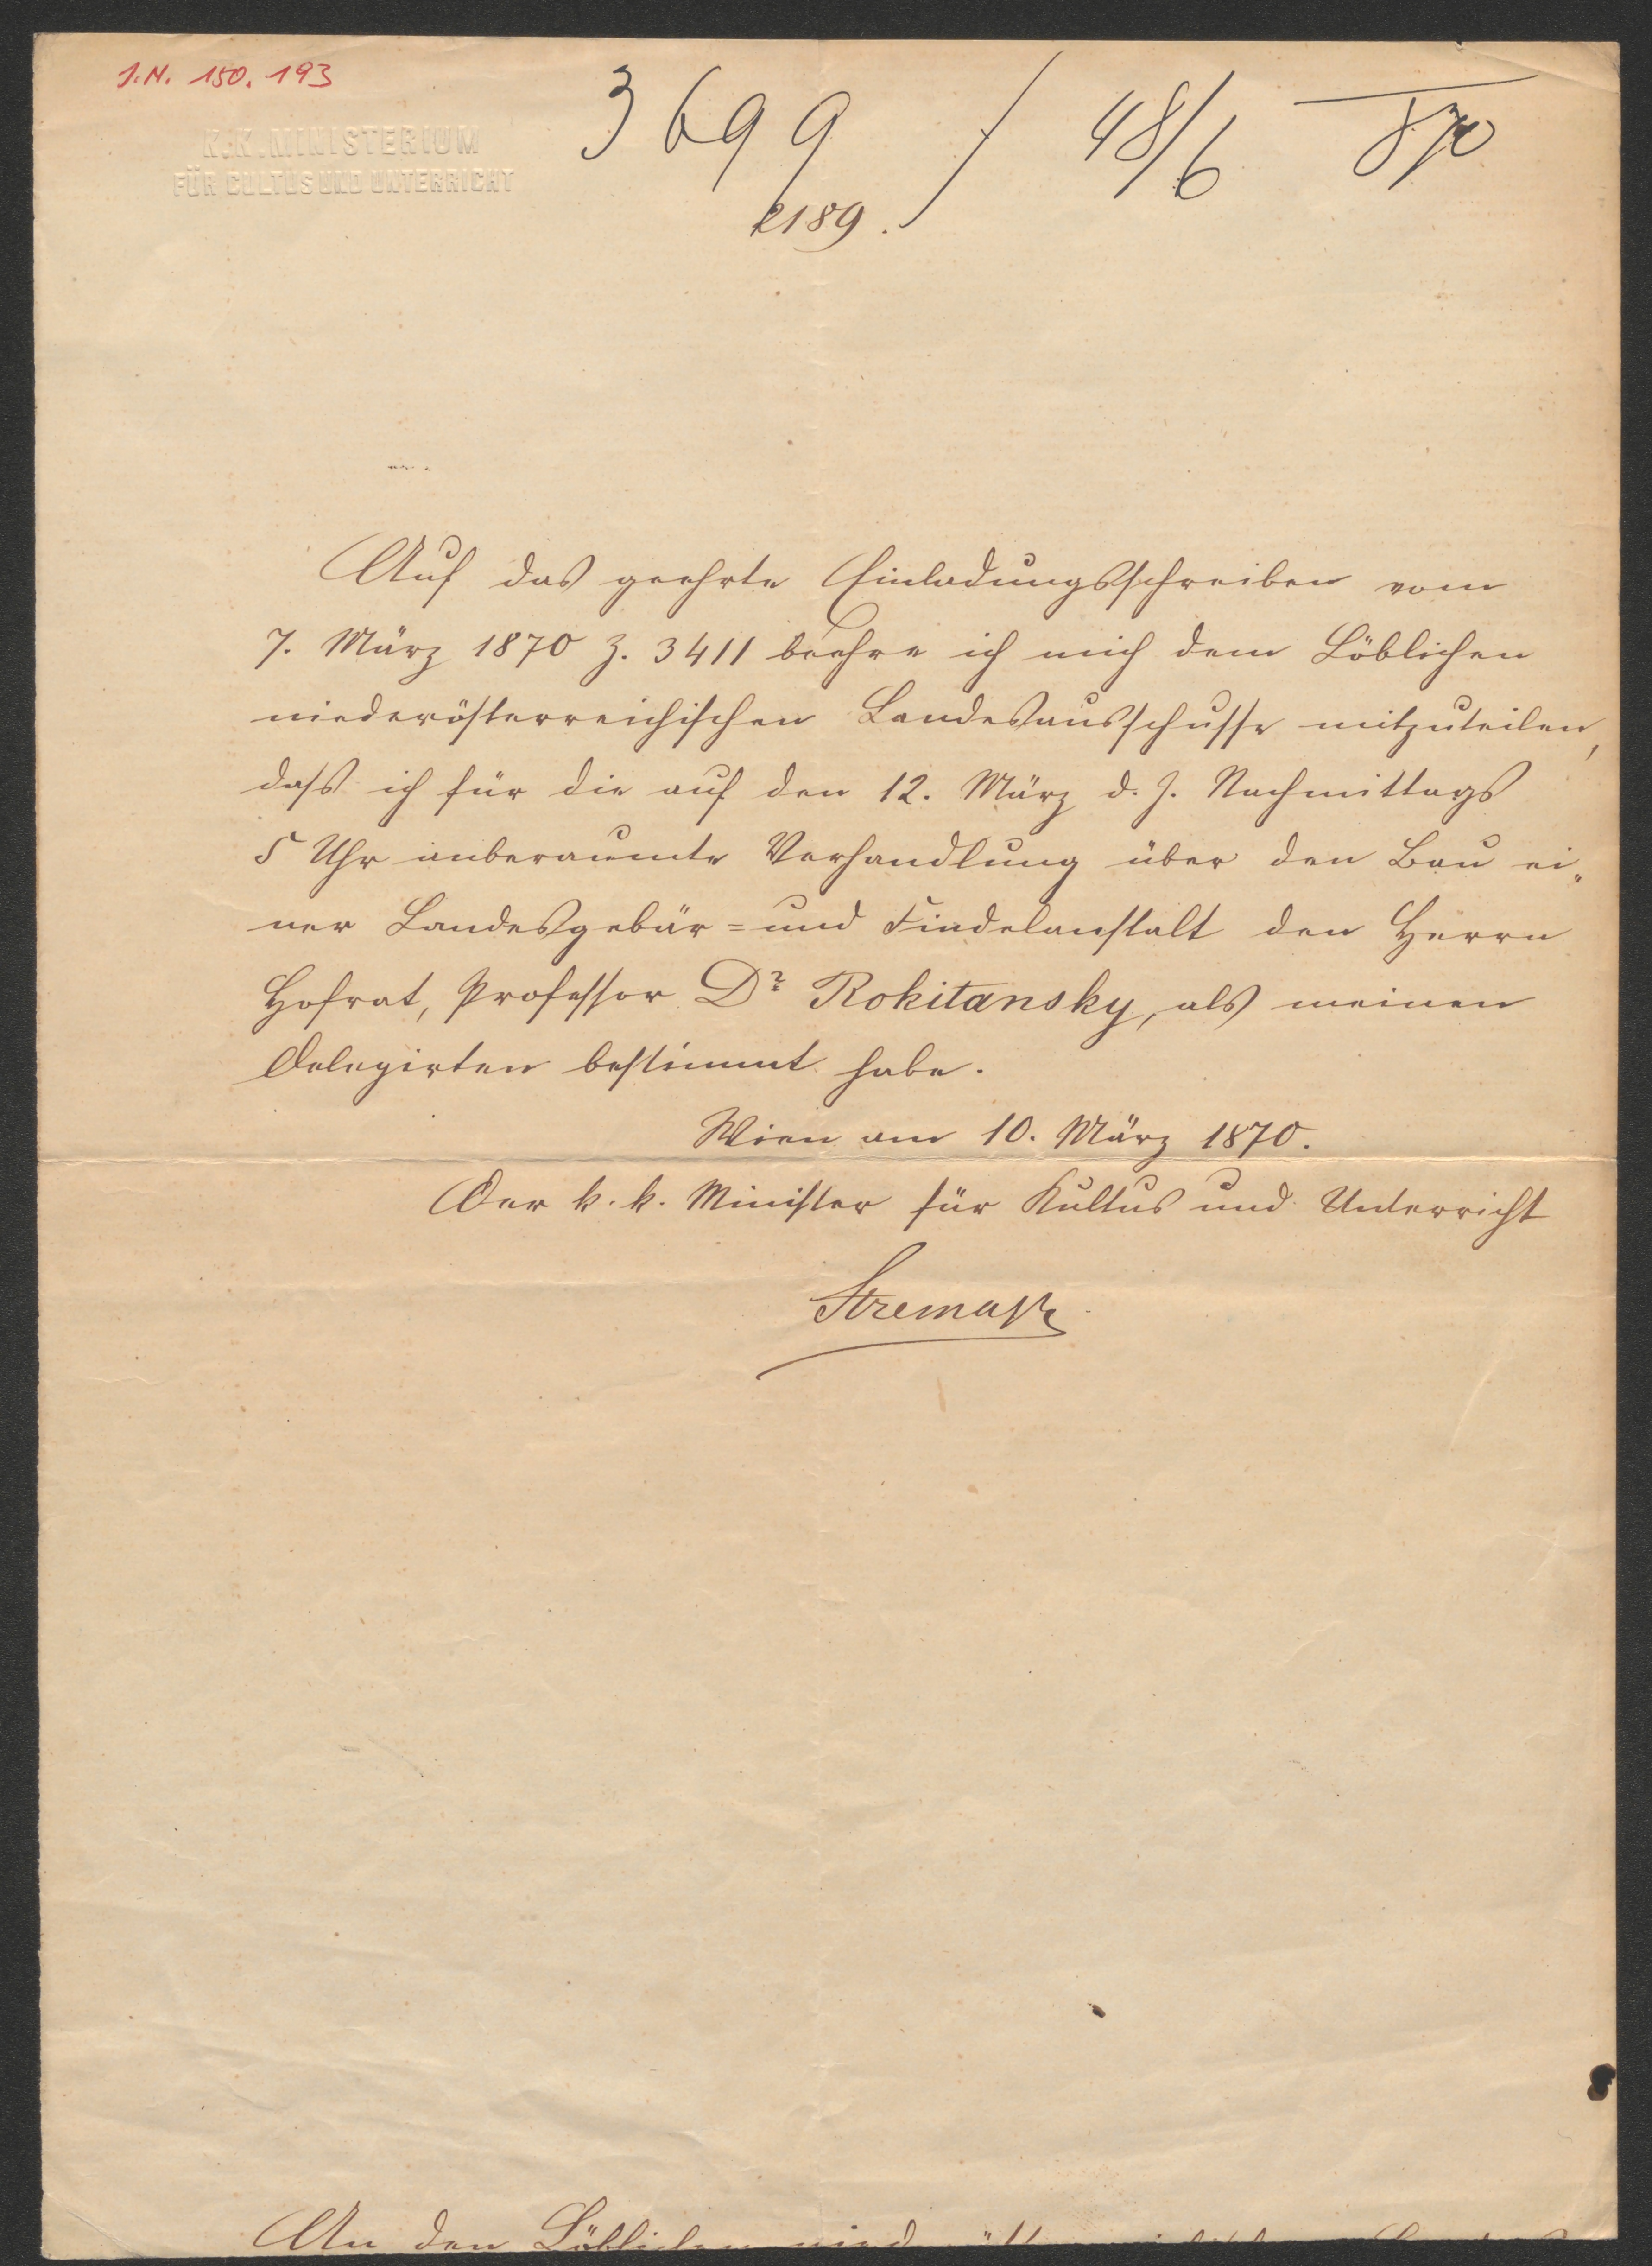 J.N. 150.193
K.K. MINISTERIUM
FÜR CULTUS UND UNTERRICHT
3699 / 48/6 870
2189.
Auf das geehrte Einladungsschreiben vom
7. März 1870 Z. 3411 beehre ich mich dem Löblichen
niederösterreichischen Landesausschusse mitzuteilen,
dass ich für die auf den 12. März d. J. Nachmittags
5 Uhr anberaumte Verhandlung über den Bau ei„
ner Landesgebär= und Findelanstalt den Herrn
Hofrat, Professor Dr Rokitansky, als meinen
Delegirten bestimmt habe.
Wien am 10. März 1870.
Der k. k. Minister für Kultus und Unterricht
Stremayr
An den Löblichen